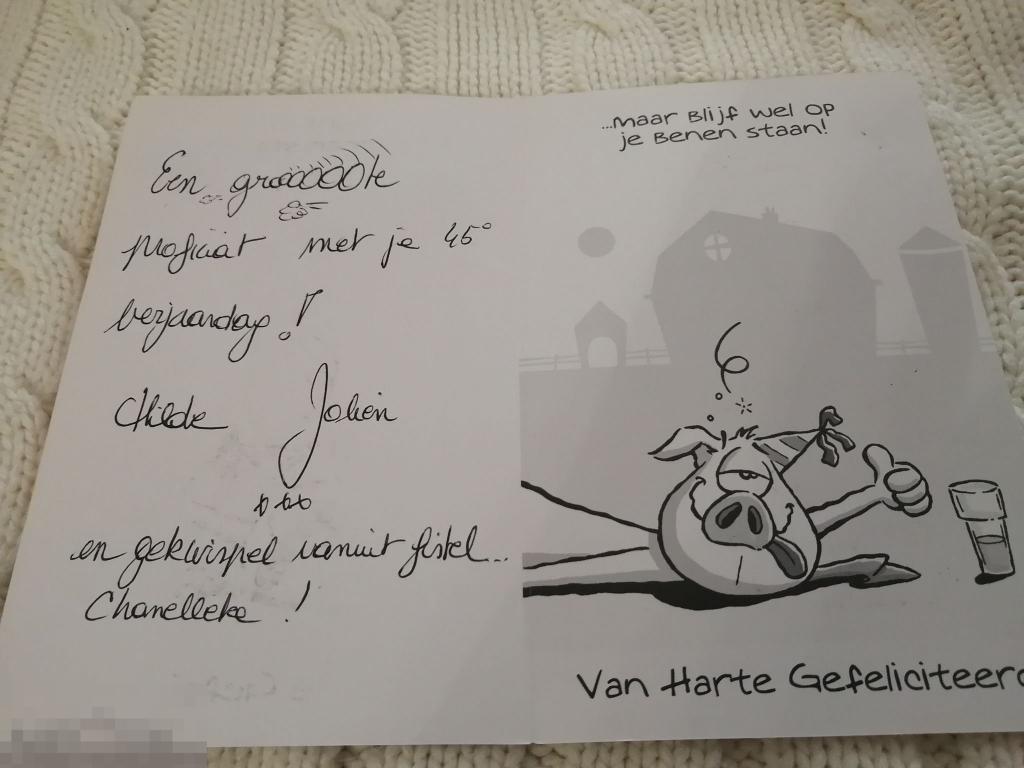 Een grooooote
proficiat met je 45°
verjaardag!
Hilde Jolien
xxx
en gekwispel vanuit
Chanelleke!
...maar Blijf wel op
je Benen staan!
Van Harte Gefeliciteerd